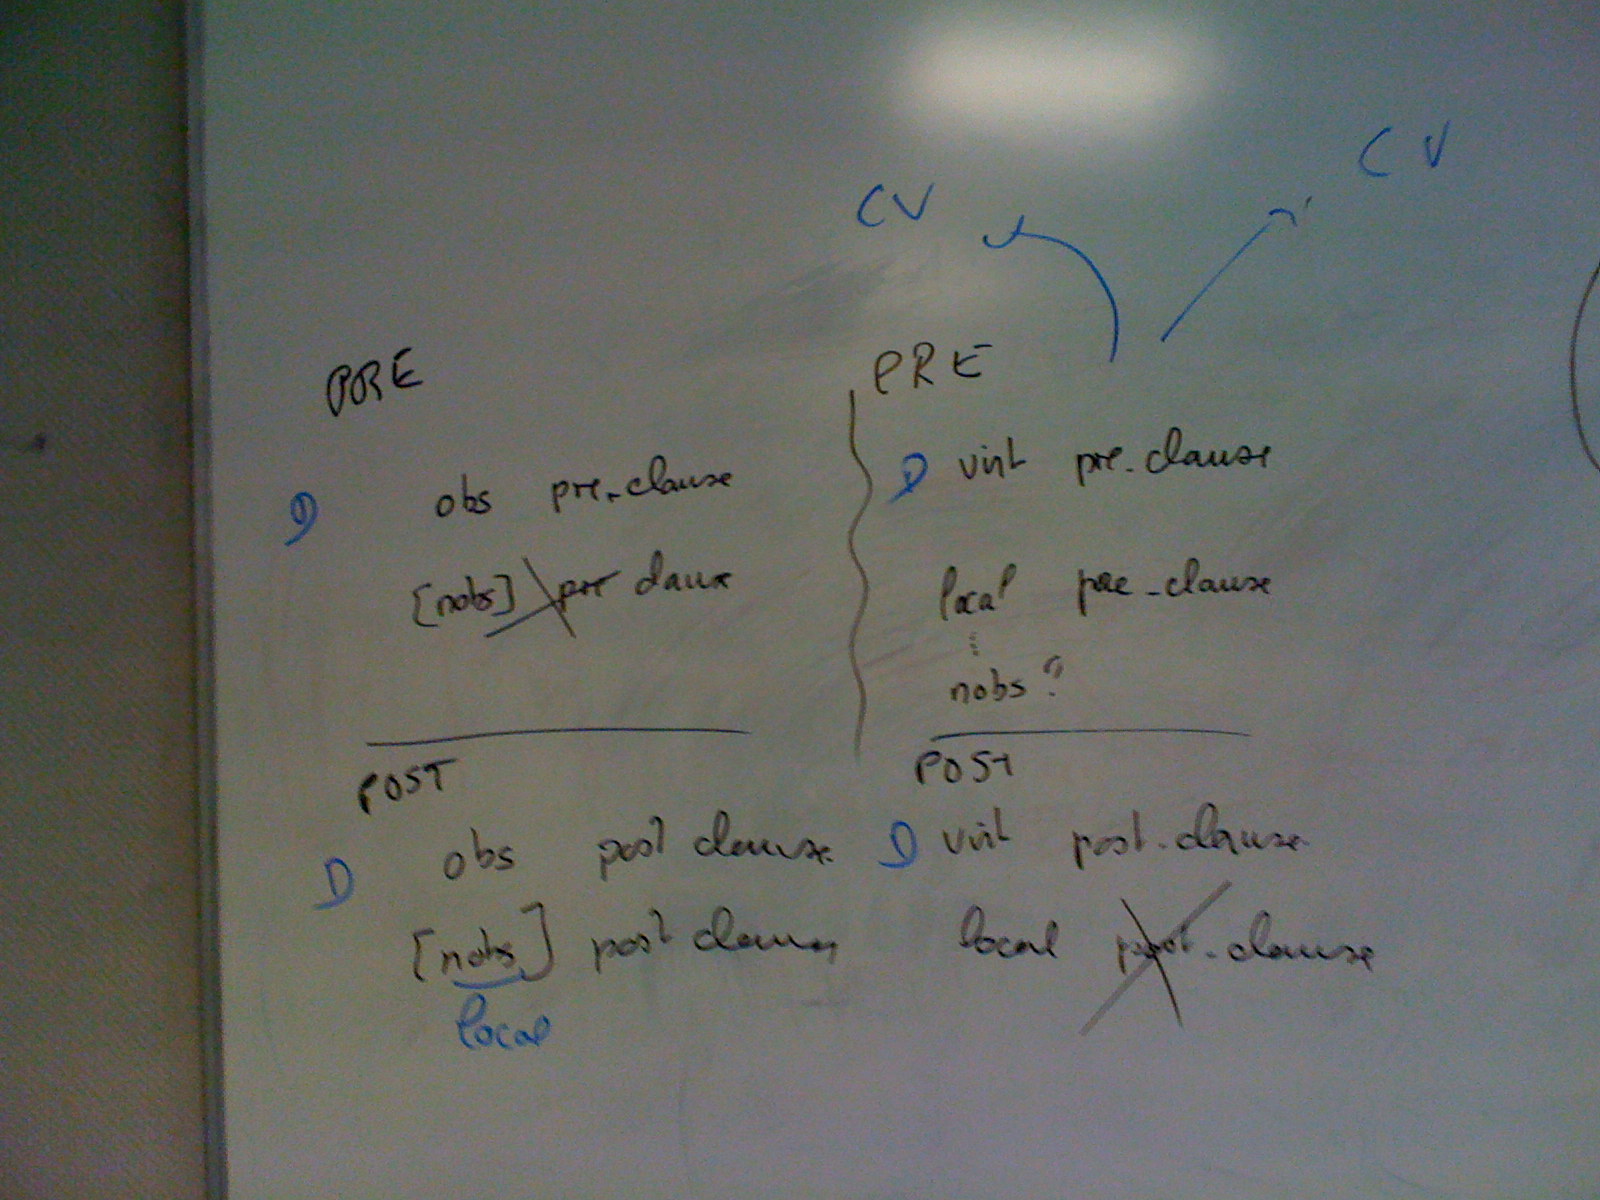 CV
CV
PRE
PRE
D obs pre_clause
D virt pre_clause
[nobs] pre clause
local pre_clause
nobs?
POST
POST
D obs post clause
D virt post_clause
[nobs] post clause
local post_clause
local